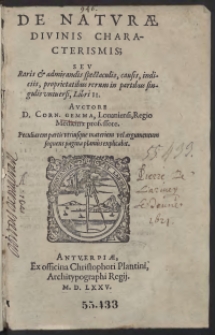 DE NATVRÆ
DIVINIS CHARA-
CTERISMIS;
SEV
Raris & admirandis spectaculis, causis, indi-
ciis, proprietatibus rerum in partibus sin-
gulis vniuersi, Libri II.
AVCTORE
D. CORN. GEMMA, Louaniensi, Regio
Medicinæ professore.
Peculiarem partis vtriusque materiem vel argumentum
sequens pagina planius explicabit.
55.433
Pierre de
1621.
ANTVERPIÆ,
Ex officina Christophori Plantini,
Architypographi Regij.
M. D. LXXV.
55.433